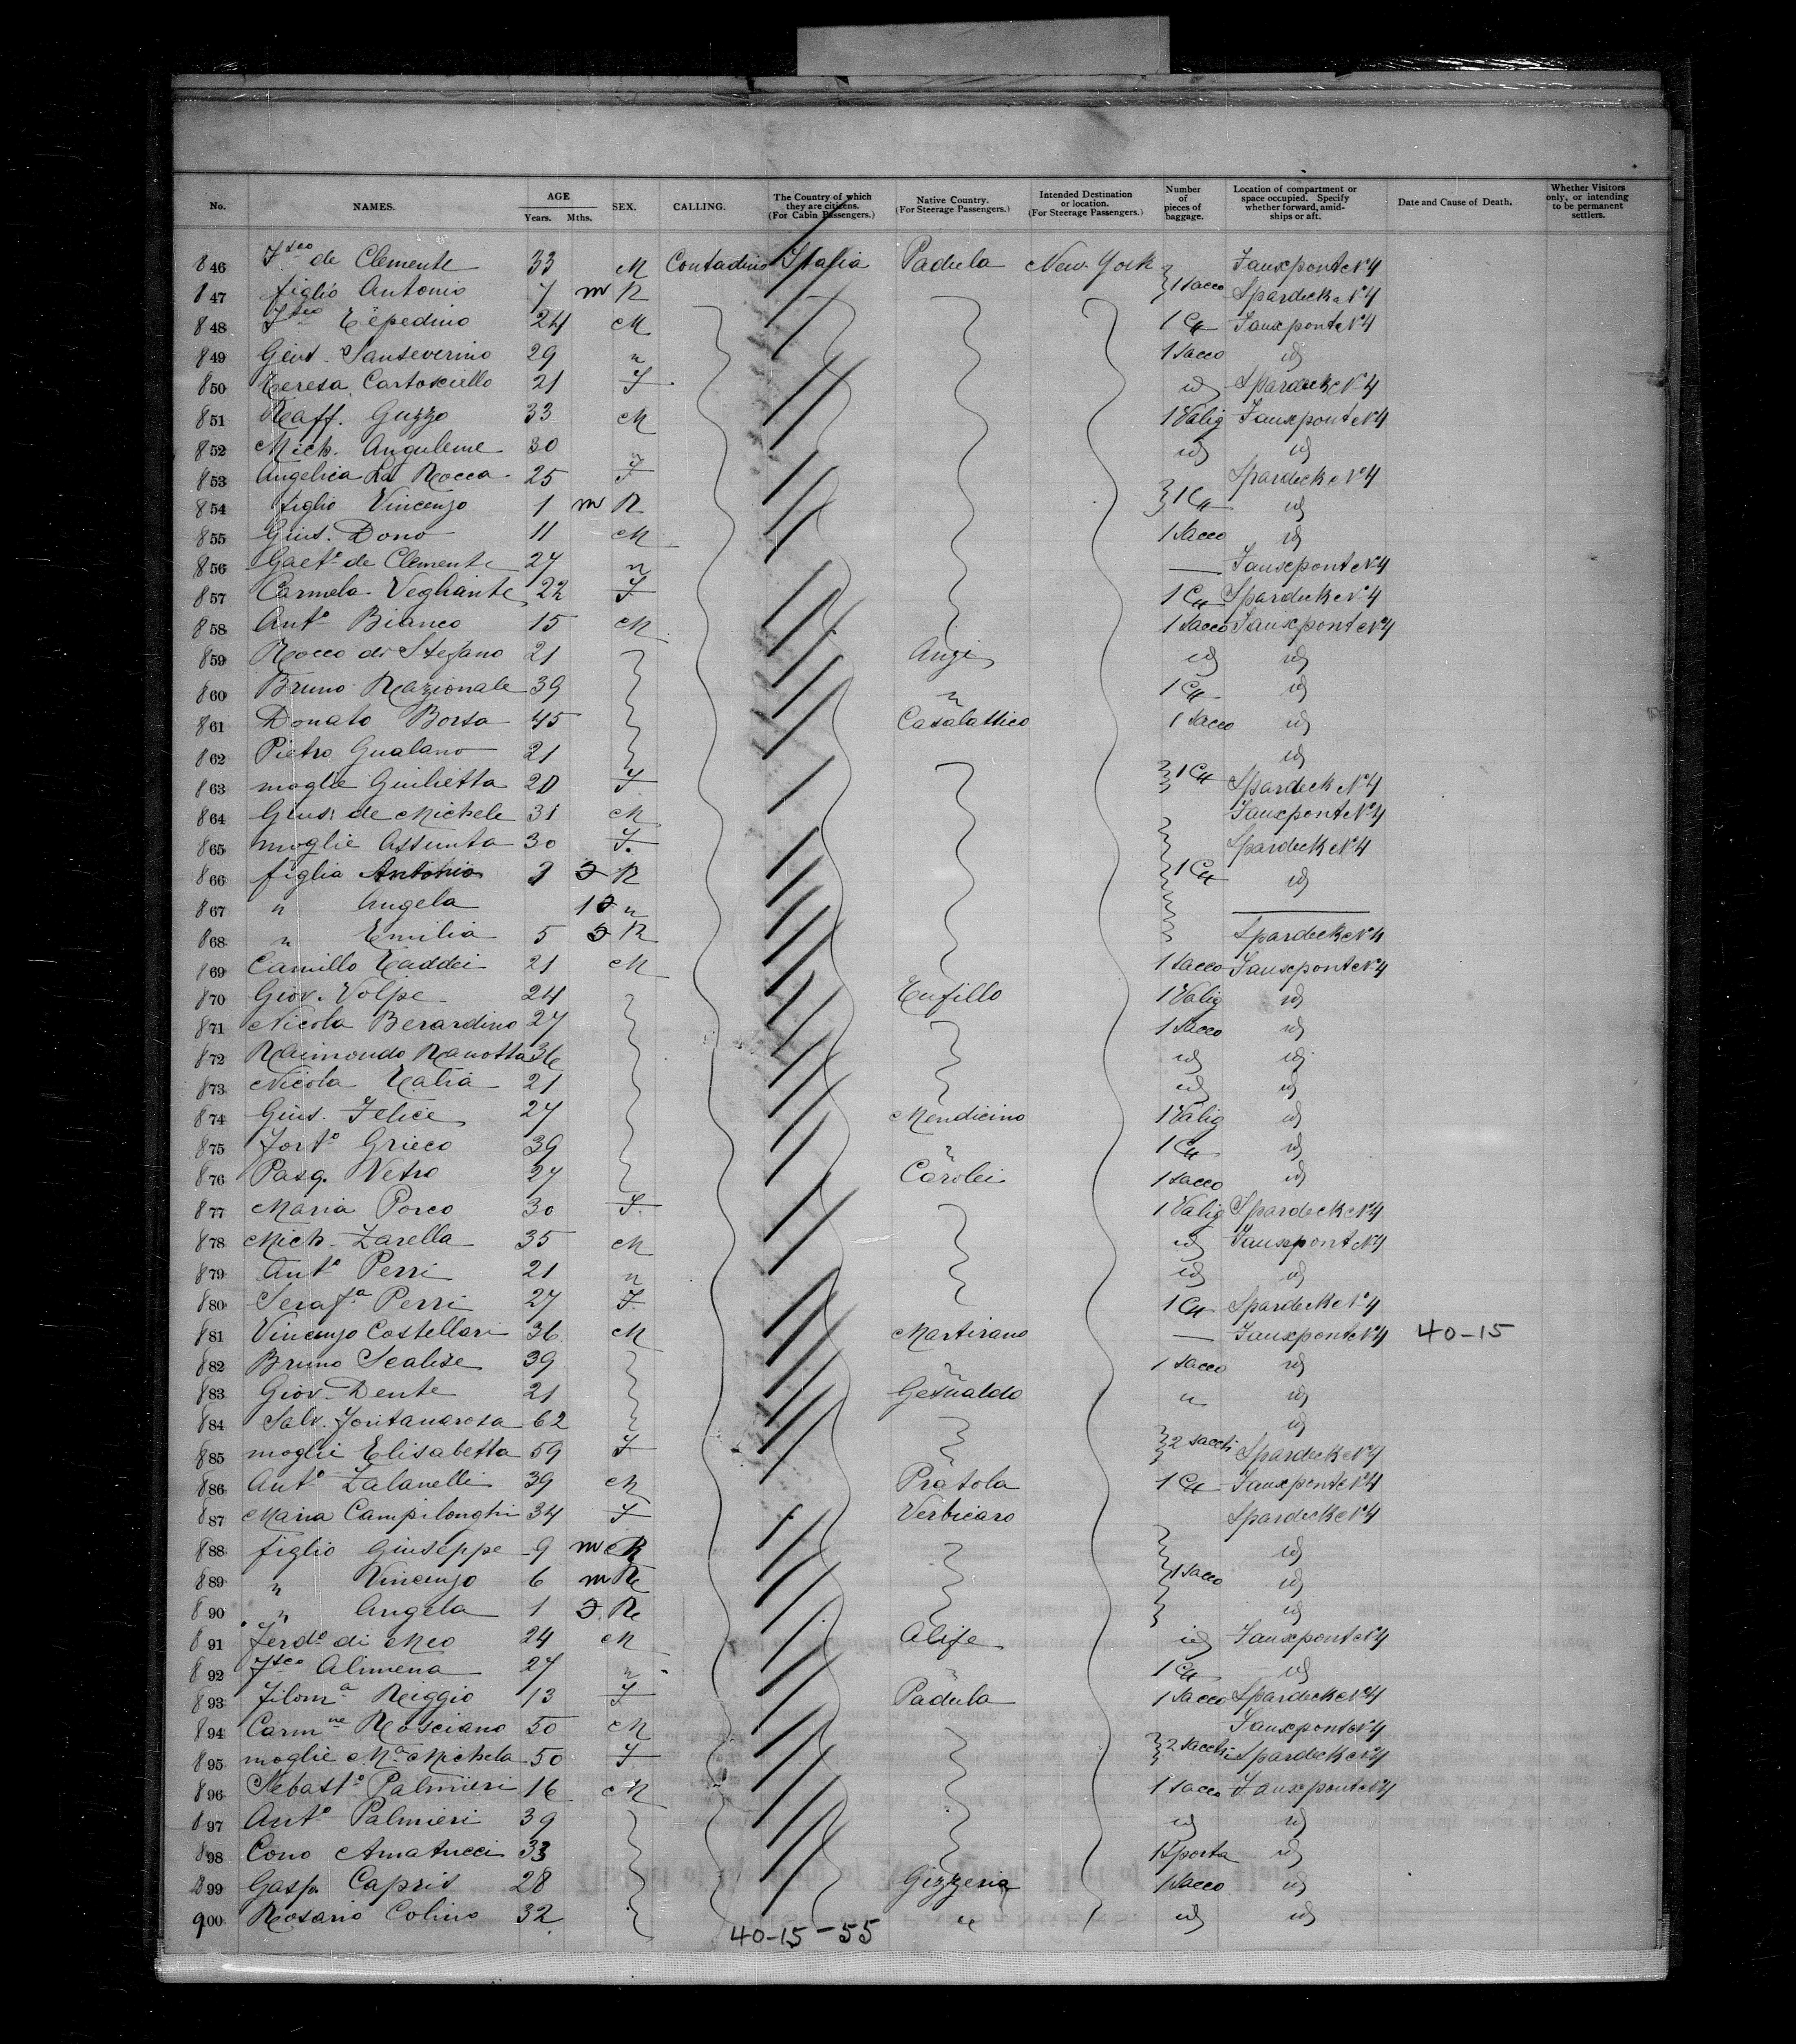 No. NAMES. AGE Years. Mths. SEX. CALLING. The Country of which they are citizens. (For Cabin Passengers.) Native Country. (For Steerage Passengers.) Intended Destination or location. (For Steerage Passengers.) Number of pieces of baggage. Location of compartment or space occupied. Specify whether forward, amidships or aft. Date and Cause of Death. Whether Visitors only, or intending to be permanent settlers.
846 Fsco de Clemente 33 M Contadino Italia Padula New-York Fauxpont N°4
847 figlio Antonio 7 m R 1 sacco Spardeck N°4
848 Fsco Tepedino 24 M 1 Ca Fauxpont N°4
849 Gius. Sanseverino 29 " 1 sacco id
850 Teresa Cartosciello 21 F id Spardeck N°4
851 Raff. Guzzo 33 M 1 Valig Fauxpont N°4
852 Mich. Anguleme 30 id id
853 Angelica La Rocca 25 F Spardeck N°4
854 figlio Vincenzo 1 m R 1 Ca id
855 Gius. Dono 11 M 1 sacco id
856 Gaet° de Clemente 27 " — Fauxpont N°4
857 Carmela Vegliante 22 F 1 Ca Spardeck N°4
858 Ant° Bianco 15 M 1 sacco Fauxpont N°4
859 Rocco di Stefano 21 Anzi id id
860 Bruno Razionale 39 " 1 Ca id
861 Donato Borsa 45 Casalattico 1 sacco id
862 Pietro Gualano 21 id
863 moglie Giulietta 20 F 1 Ca Spardeck N°4
864 Gius. de Michele 31 M Fauxpont N°4
865 moglie Assunta 30 F. Spardeck N°4
866 figlia Antonia 3 F R 1 Ca id
867 " Angela 1 F " —
868 " Emilia 5 F R Spardeck N°4
869 Camillo Taddei 21 M 1 sacco Fauxpont N°4
870 Giov. Volpe 24 Tufillo 1 Valig id
871 Nicola Berardino 27 1 sacco id
872 Raimondo Ranotta 36 id id
873 Nicola Talia 21 id id
874 Gius. Felice 27 Mendicino 1 Valig id
875 Fort° Grieco 39 " 1 Ca id
876 Pasq. Vetro 27 Carolei 1 sacco id
877 Maria Porco 30 F. 1 Valig Spardeck N°4
878 Mich. Zarella 35 M id Fauxpont N°4
879 Ant° Perri 21 " id id
880 Serafa Perri 27 F 1 Ca Spardeck N°4
881 Vincenzo Costellari 36 M Martirano — Fauxpont N°4 40-15
882 Bruno Scalise 39 " 1 sacco id
883 Giov. Dente 21 Gesualdo " id
884 Salv. Fontanarosa 62 id
885 moglie Elisabetta 59 F 2 sacchi Spardeck N°4
886 Ant° Zalanelli 39 M Pratola 1 Ca Fauxpont N°4
887 Maria Campilonghi 34 F Verbicaro Spardeck N°4
888 figlio Giuseppe 9 m R id
889 " Vincenzo 6 m R 1 sacco id
890 " Angela 1 F R id
891 Ferd° di Meo 24 M Alife id Fauxpont N°4
892 Fsco Alimena 27 " " 1 Ca id
893 Filoma Reiggio 13 F Padula 1 sacco Spardeck N°4
894 Carmne Rosciano 50 M Fauxpont N°4
895 moglie Ma Michela 50 F 2 sacchi Spardeck N°4
896 Sebast° Palmieri 16 M 1 sacco Fauxpont N°4
897 Ant° Palmieri 39 id id
898 Cono Amatucci 33 1 Sporta id
899 Gasp. Capris 28 Gizzeria 1 sacco id
900 Rosario Colino 32 " id id
40-15-55